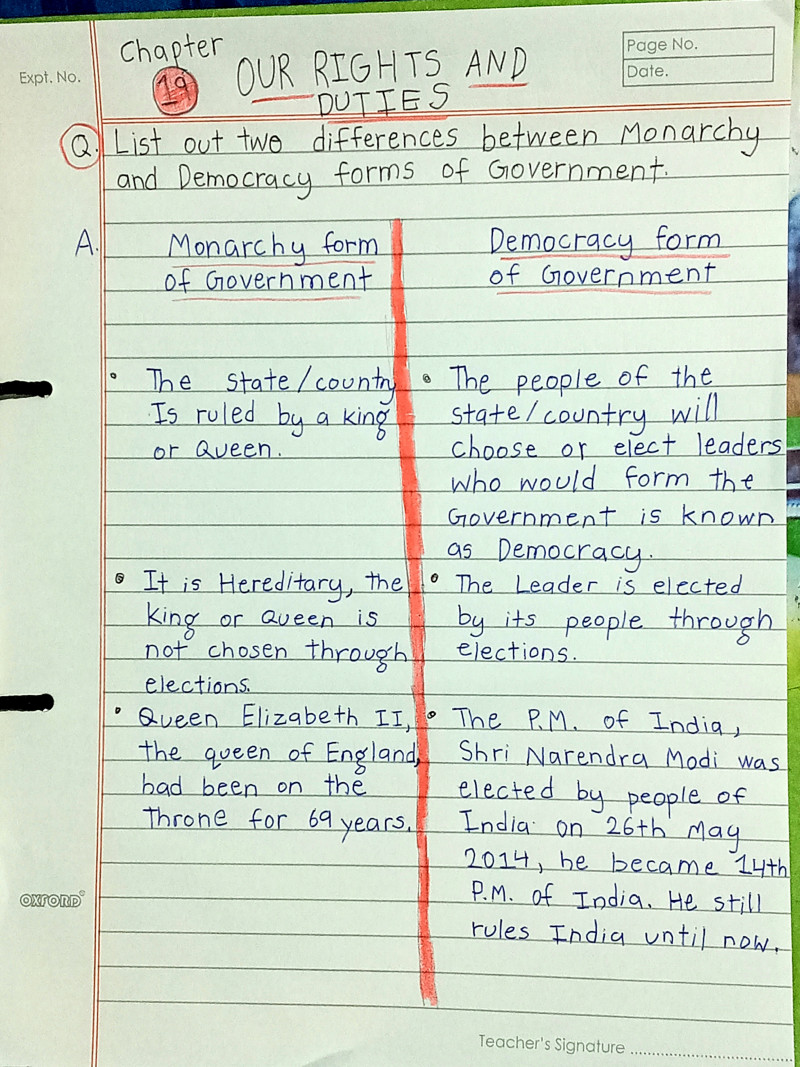 Expt. No.
Chapter
19
OUR RIGHTS AND
DUTIES
Page No.
Date.
Q. List out two differences between Monarchy
and Democracy forms of Government.
A.
Monarchy form
of Government
The state/country
Is ruled by a king
or Queen.
It is Hereditary, the
king or Queen is
not chosen through
elections.
Queen Elizabeth II,
the queen of England,
had been on the
Throne for 69 years.
Democracy form
of Government
The people of the
state/country will
choose or elect leaders
who would form the
Government is known
as Democracy.
The Leader is elected
by its people through
elections.
The P.M. of India,
Shri Narendra Modi was
elected by people of
India on 26th May
2014, he became 14th
P.M. of India. He still
rules India until now.
OXFORD
Teacher's Signature